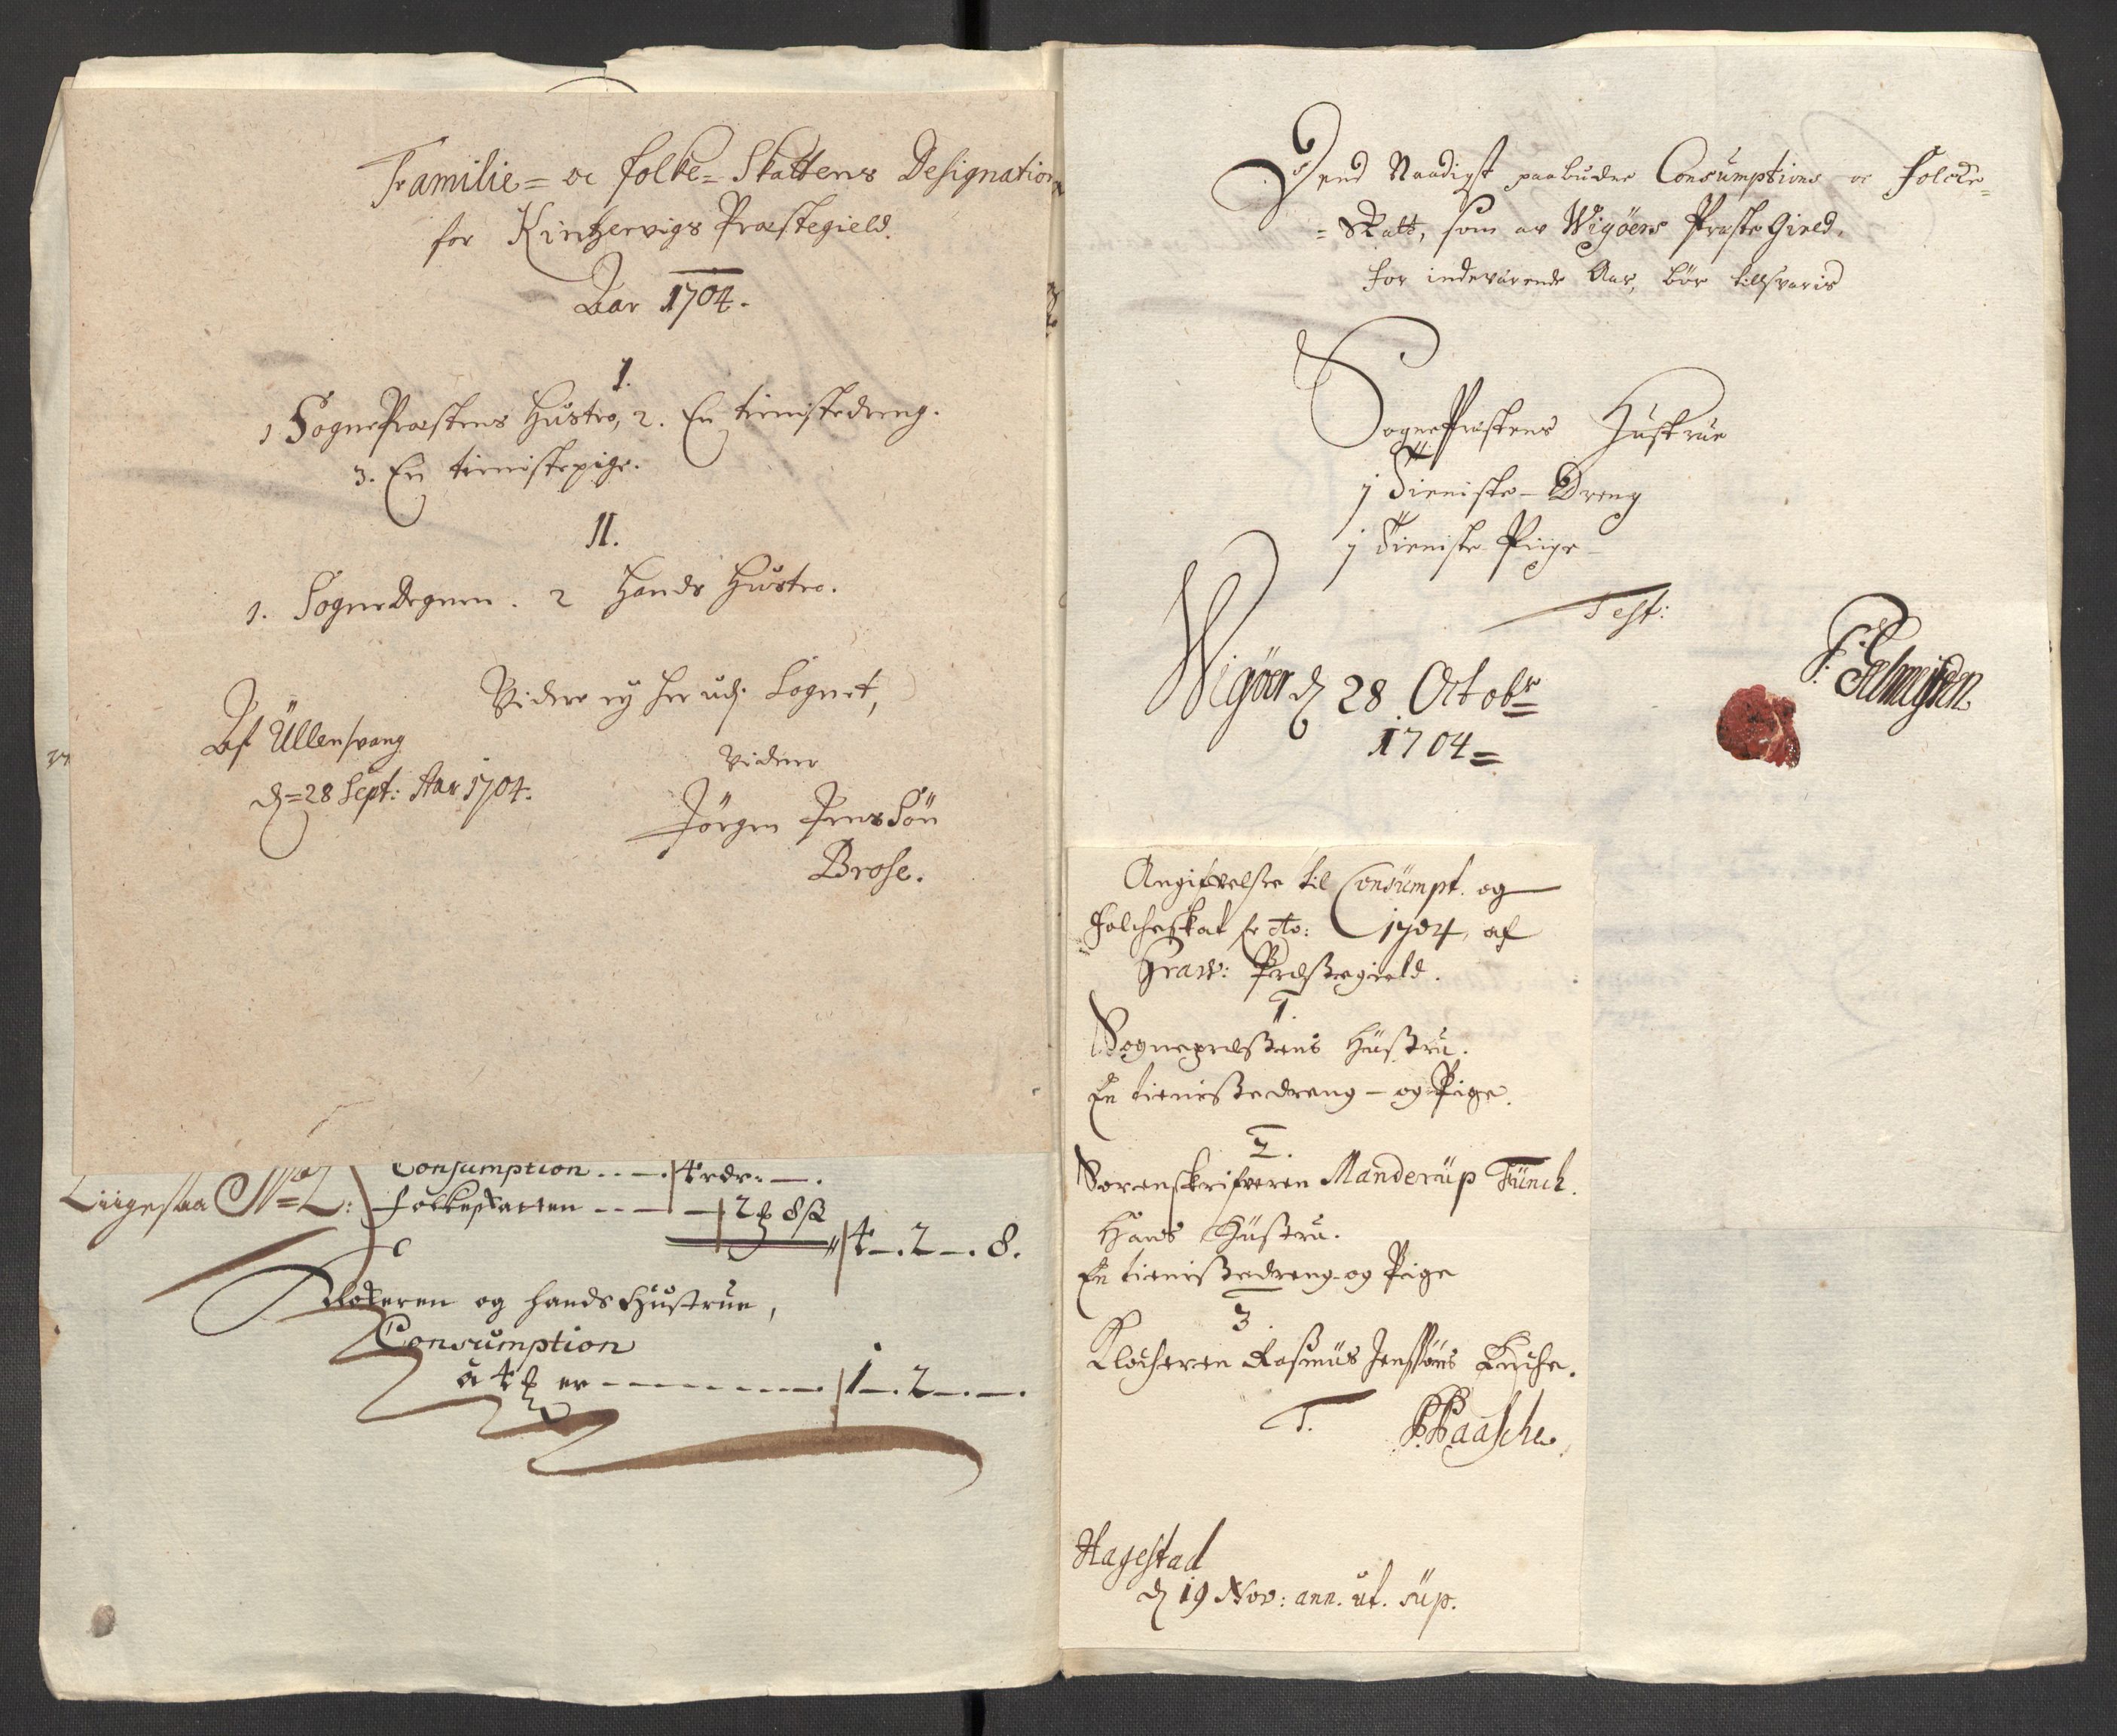 Familie= oc folke= Skattens Designation
for Kinzervigs Præstegield.
Aar 1704.
I.
1 SognePræstens Hustro, 2. En tienistedreng.
3. En tienistepige.
II.
1. SogneDegnen. 2 Hands Hustro.
Videre ey her udj Sognet,
Af Ullensvang
d=28 Sept: Aar 1704.
vidner
Jörgen JensSön
Brose.
Consumption . . — . 4 rdr. — .
Liigesaa N=2: folkeskatten - - — 2 ℔ 8 ß
4 — . 2 — . 8.
Klokeren og hands Hustrue,
Consumption
à 4 ℔ er - - - - - - - - 1 — . 2 — . — .
Dend Naadigst paabudne Consumptions oc Folcke=
=Skatt, som av Wigöers PræsteGield,
for indeværende Aar, bör tillsvaris
SognePræstens Hustrue
j Tieniste-Dreng
j Tieniste-Piige
Test:
Wigöer d 28 Octobr
1704=
Angifvelse til Consumpt. og
Folcheskat 1704, af
Graw: Præstegield.
1.
Sognepræstens Hustru.
En tienistedreng - og Pige.
2.
Sorenskrifveren Manderup Fünck.
Hans Hustru.
En tienistedreng og Pige
3.
Klocheren Rasmus Jenssöns Lyche.
T.
Paasche
Hagestad
d 19 Nov: ann. ut. sup.